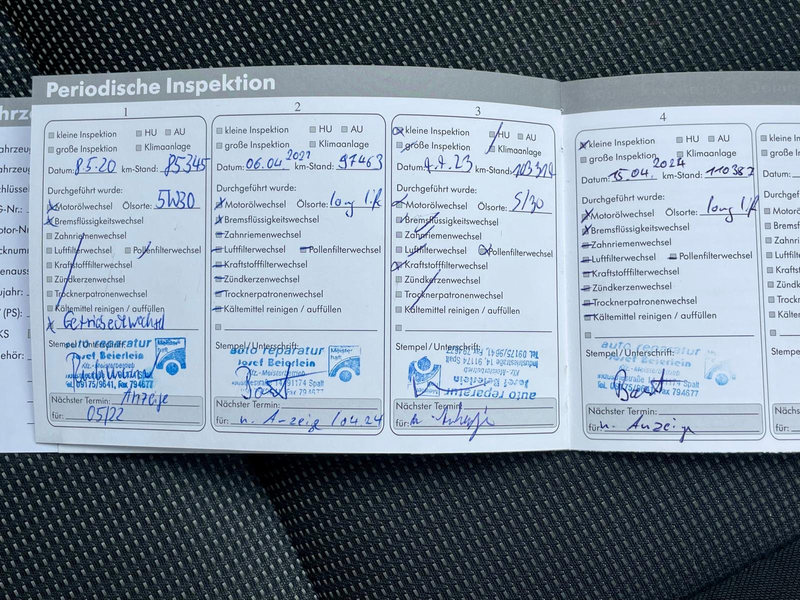 Periodische Inspektion
1
kleine Inspektion HU AU
große Inspektion Klimaanlage
Datum: 8.5.20 km-Stand: 85345
Durchgeführt wurde:
Motorölwechsel Ölsorte: 5W30
Bremsflüssigkeitswechsel
Zahnriemenwechsel
Luftfilterwechsel Pollenfilterwechsel
Kraftstofffilterwechsel
Zündkerzenwechsel
Trocknerpatronenwechsel
Kältemittel reinigen / auffüllen
Stempel/Unterschrift:
auto reparatur
Josef Beierlein
Kfz.-Meisterbetrieb
Tel. 09175/9641, Fax 794677
Nächster Termin: Anzeige
für: 05/22
2
kleine Inspektion HU AU
große Inspektion Klimaanlage
Datum: 06.04 2022 km-Stand: 97463
Durchgeführt wurde:
Motorölwechsel Ölsorte: long life
Bremsflüssigkeitswechsel
Zahnriemenwechsel
Luftfilterwechsel Pollenfilterwechsel
Kraftstofffilterwechsel
Zündkerzenwechsel
Trocknerpatronenwechsel
Kältemittel reinigen / auffüllen
Stempel/Unterschrift:
auto reparatur
Josef Beierlein
Kfz.-Meisterbetrieb
91174 Spalt
Fax 794677
Nächster Termin:
für: n. Anzeige /04.24
3
kleine Inspektion HU AU
große Inspektion Klimaanlage
Datum: km-Stand:
Durchgeführt wurde:
Motorölwechsel Ölsorte: 5/30
Bremsflüssigkeitswechsel
Zahnriemenwechsel
Luftfilterwechsel Pollenfilterwechsel
Kraftstofffilterwechsel
Zündkerzenwechsel
Trocknerpatronenwechsel
Kältemittel reinigen / auffüllen
Stempel/Unterschrift:
auto reparatur
Josef Beierlein
Kfz.-Meisterbetrieb
Industriestraße 14, 91174 Spalt
Tel. 09175/9641, Fax 794677
Nächster Termin:
für:
4
kleine Inspektion HU AU
große Inspektion Klimaanlage
Datum: 15.04. 2024 km-Stand: 110382
Durchgeführt wurde:
Motorölwechsel Ölsorte: long life
Bremsflüssigkeitswechsel
Zahnriemenwechsel
Luftfilterwechsel Pollenfilterwechsel
Kraftstofffilterwechsel
Zündkerzenwechsel
Trocknerpatronenwechsel
Kältemittel reinigen / auffüllen
Stempel/Unterschrift:
auto reparatur
Josef Beierlein
Kfz.-Meisterbetrieb
91174 Spalt
Tel. 09175/9641, Fax 794677
Nächster Termin:
für: n. Anzeige